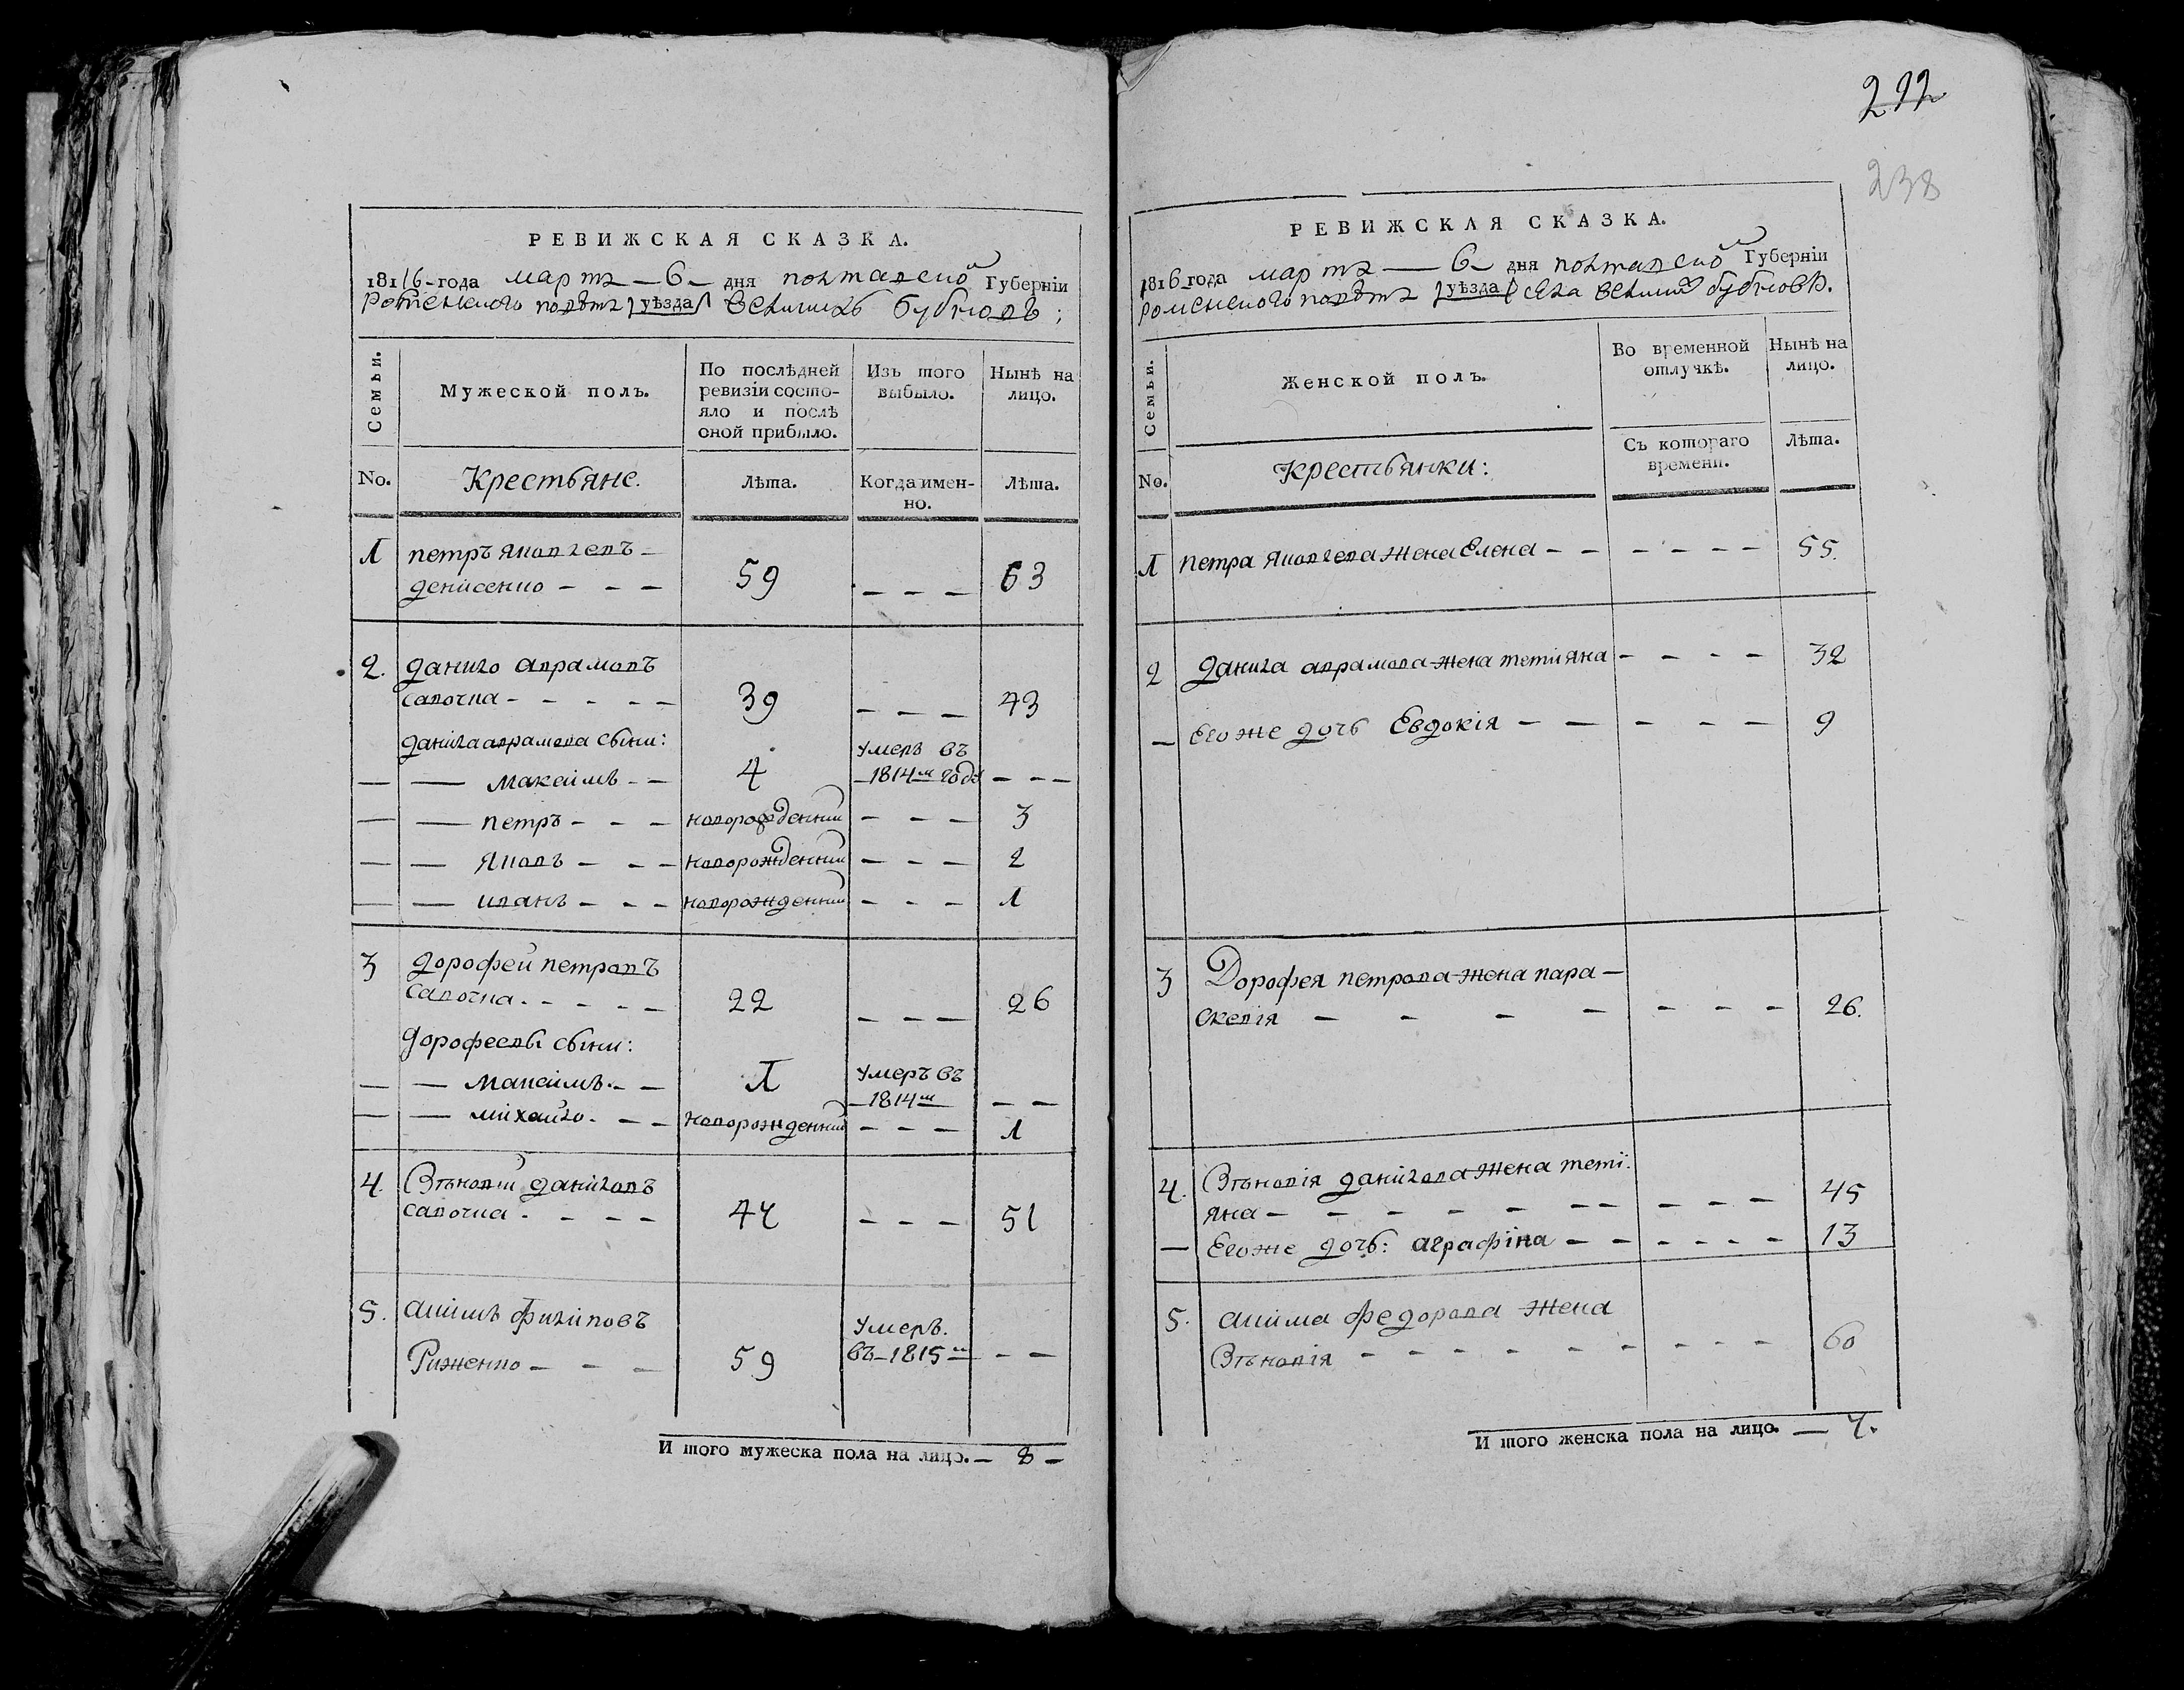 РЕВИЖСКАЯ СКАЗКА.
1816-года марта — 6 — дня полтавской Губерніи
роменского повѣта уѣзда великихъ бубновъ;
Семьи.
Мужеской полъ.
По послѣдней ревизіи состояло и послѣ оной прибыло.
Изъ того выбыло.
Нынѣ на лицо.
No. Крестьяне. Лѣта. Когда именно. Лѣта.
1 петръ яковлевъ —
денисенко — — — 59 — — — 63
2. данило аврамовъ
савочка — — — — — 39 — — — 43
данила аврамова сыни:
— — максимъ — — 4 умеръ въ 1814м годѣ — — —
— — петръ — — — новорожденний — — — 3
— — яковъ — — — новорожденний — — — 2
— — иванъ — — — новорожденний — — — 1
3 дорофей петровъ
савочка — — — — — 22 — — — 26
дорофеевы сыни:
— — максимъ — — 1 умеръ въ 1814м — —
— — михайло — — — новорожденний — — — 1
4. Ѣвновій даниловъ
савочка — — — — 47 — — — 51
5. акимъ филиповъ
Риженко — — — 59 умеръ. въ — 1815м — —
И того мужеска пола на лицо. — 8 —
292
238
РЕВИЖСКАЯ СКАЗКА.
1816 года марта — 6 — дня полтавской Губерніи
роменского повѣта уѣзда села великихъ бубновъ.
Семьи.
Женской полъ.
Во временной отлучкѣ.
Нынѣ на лицо.
No. Крестьянки: Съ котораго времени. Лѣта.
1 петра яковлева жена Елена — — — — — — — 55.
2 данила аврамова жена тетияна — — — — 32
— Его же дочь Евдокія — — — — — 9
3 Дорофея петрова жена пара —
скевія — — — — — — — — 26.
4. данилова жена теті-
яна — — — — — — — — — — — 45
— Его же дочь: аграфіна — — — — — — 13
5. акима федорова жена
— — — — — — — — — — 60
И того женска пола на лицо. — 7.